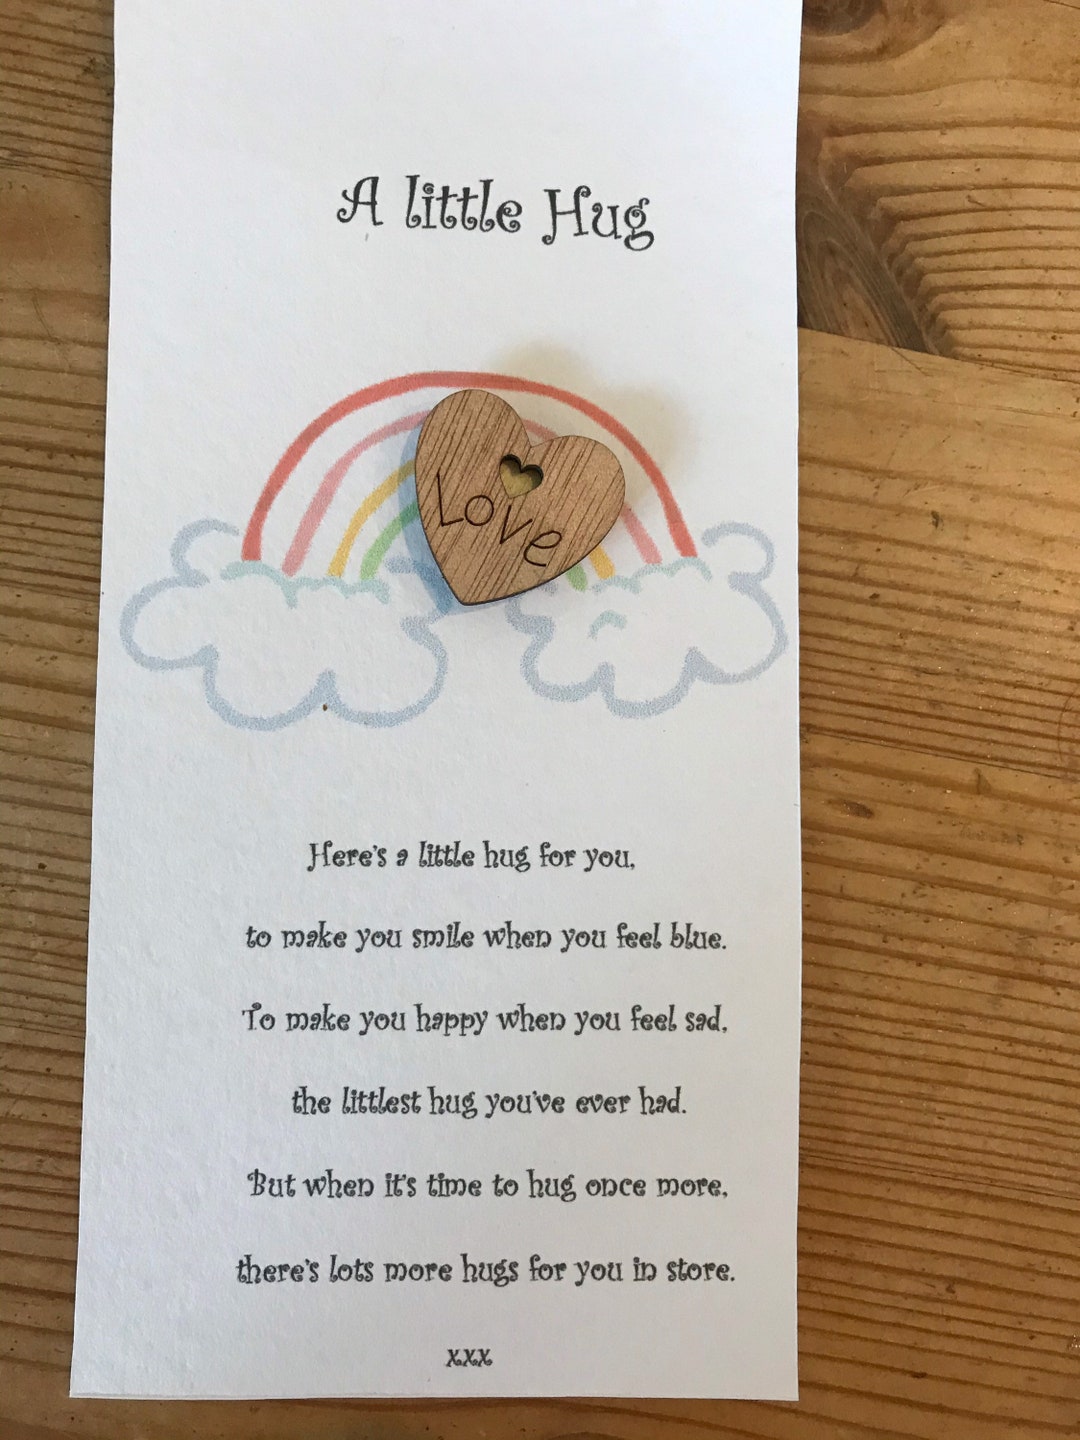 A little Hug
Love
Here's a little hug for you,
to make you smile when you feel blue.
To make you happy when you feel sad,
the littlest hug you've ever had.
But when it's time to hug once more,
there's lots more hugs for you in store.
xxx